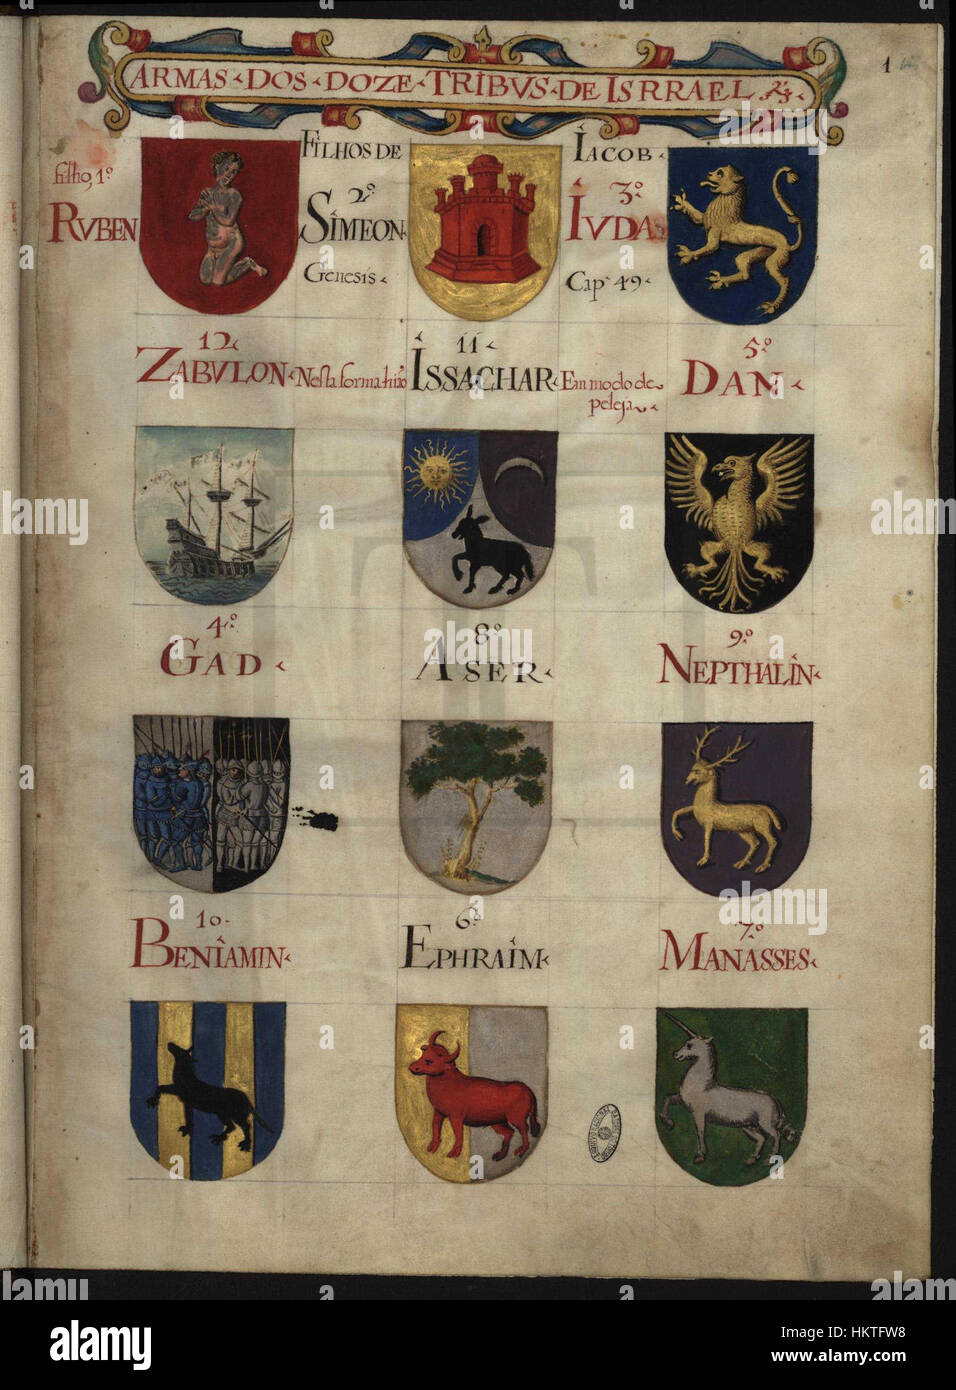 ARMAS DOS DOZE TRIBVS DE ISRRAEL
1
filho, 1º
RVBEN
FILHOS DE
2º
SIMEON
Genesis
IACOB
3º
IVDA
Cap 49
12
ZABVLON
Nesta forma hião
11
ISSACHAR
Em modo de
peleja
5º
DAN
4º
GAD
8º
ASER
9º
NEPTHALIN
10
BENIAMIN
6º
EPHRAIM
7º
MANASSES
alamy
a
alamy stock photo
HKTFW8
www.alamy.com